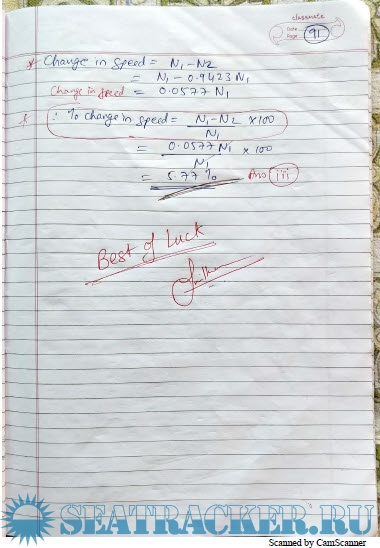 classmate
Date
Page 91
* Change in speed = N1 - N2
= N1 - 0.9423 N1
Change in speed = 0.0577 N1
* ∴ % change in speed = N1 - N2 / N1 × 100
= 0.0577 N1 / N1 × 100
= 5.77 % Ans iii
Best of Luck
SEATRACKER.RU
Scanned by CamScanner